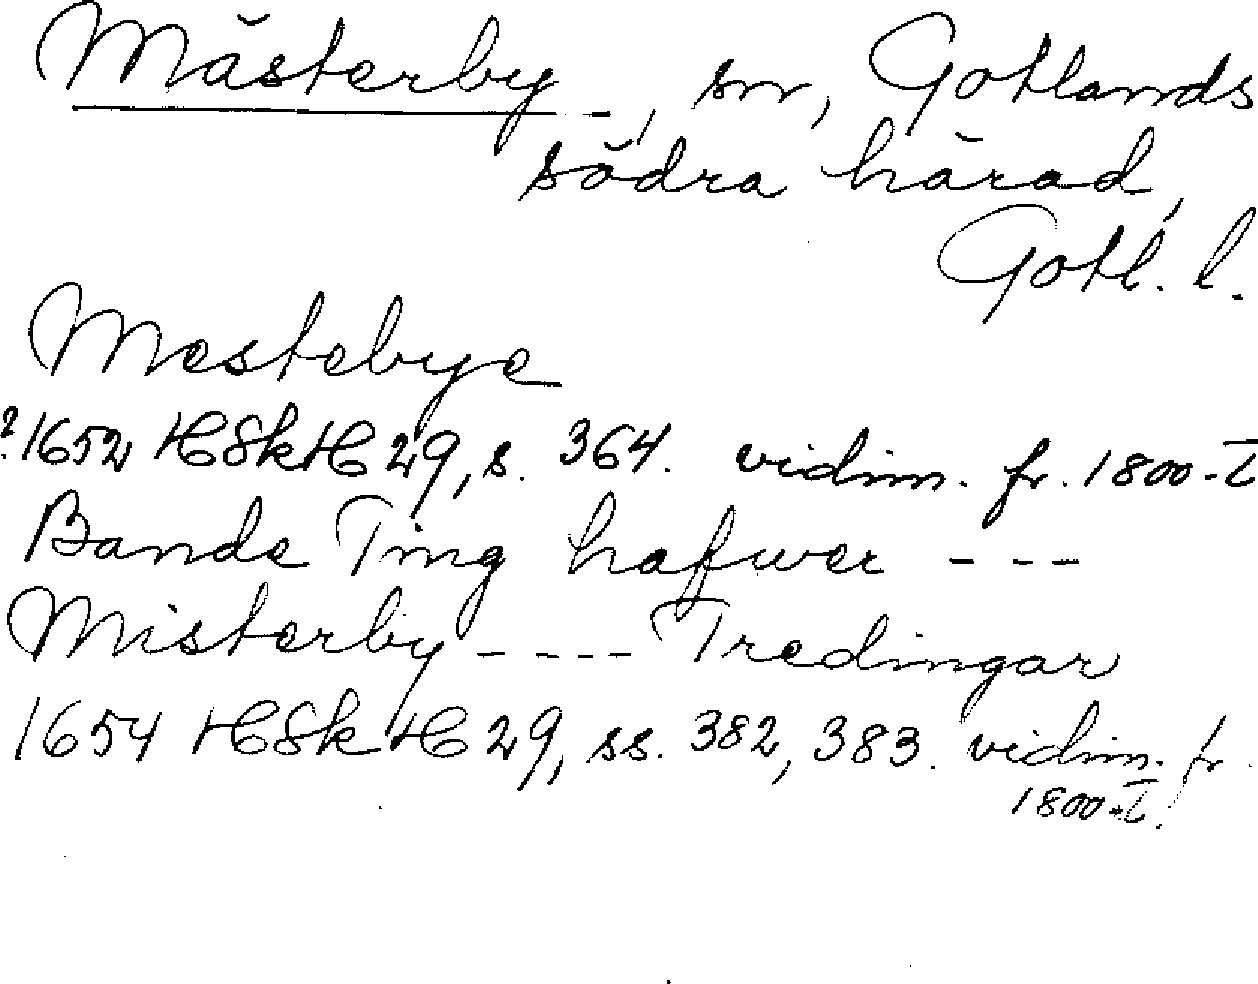 Mästerby, sn, Gotlands
södra härad,
Gotl. l.
Mestebye
?1652 HSkH 29, s. 364. vidim. fr. 1800-t
Bande Ting hafwer ---
Misterby ---- Tredingar
1654 HSkH 29, ss. 382, 383. vidim. fr.
1800-t.